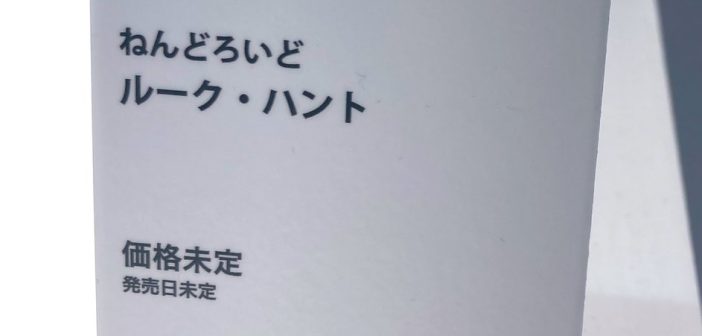 ねんどろいど
ルーク・ハント
価格未定
発売日未定